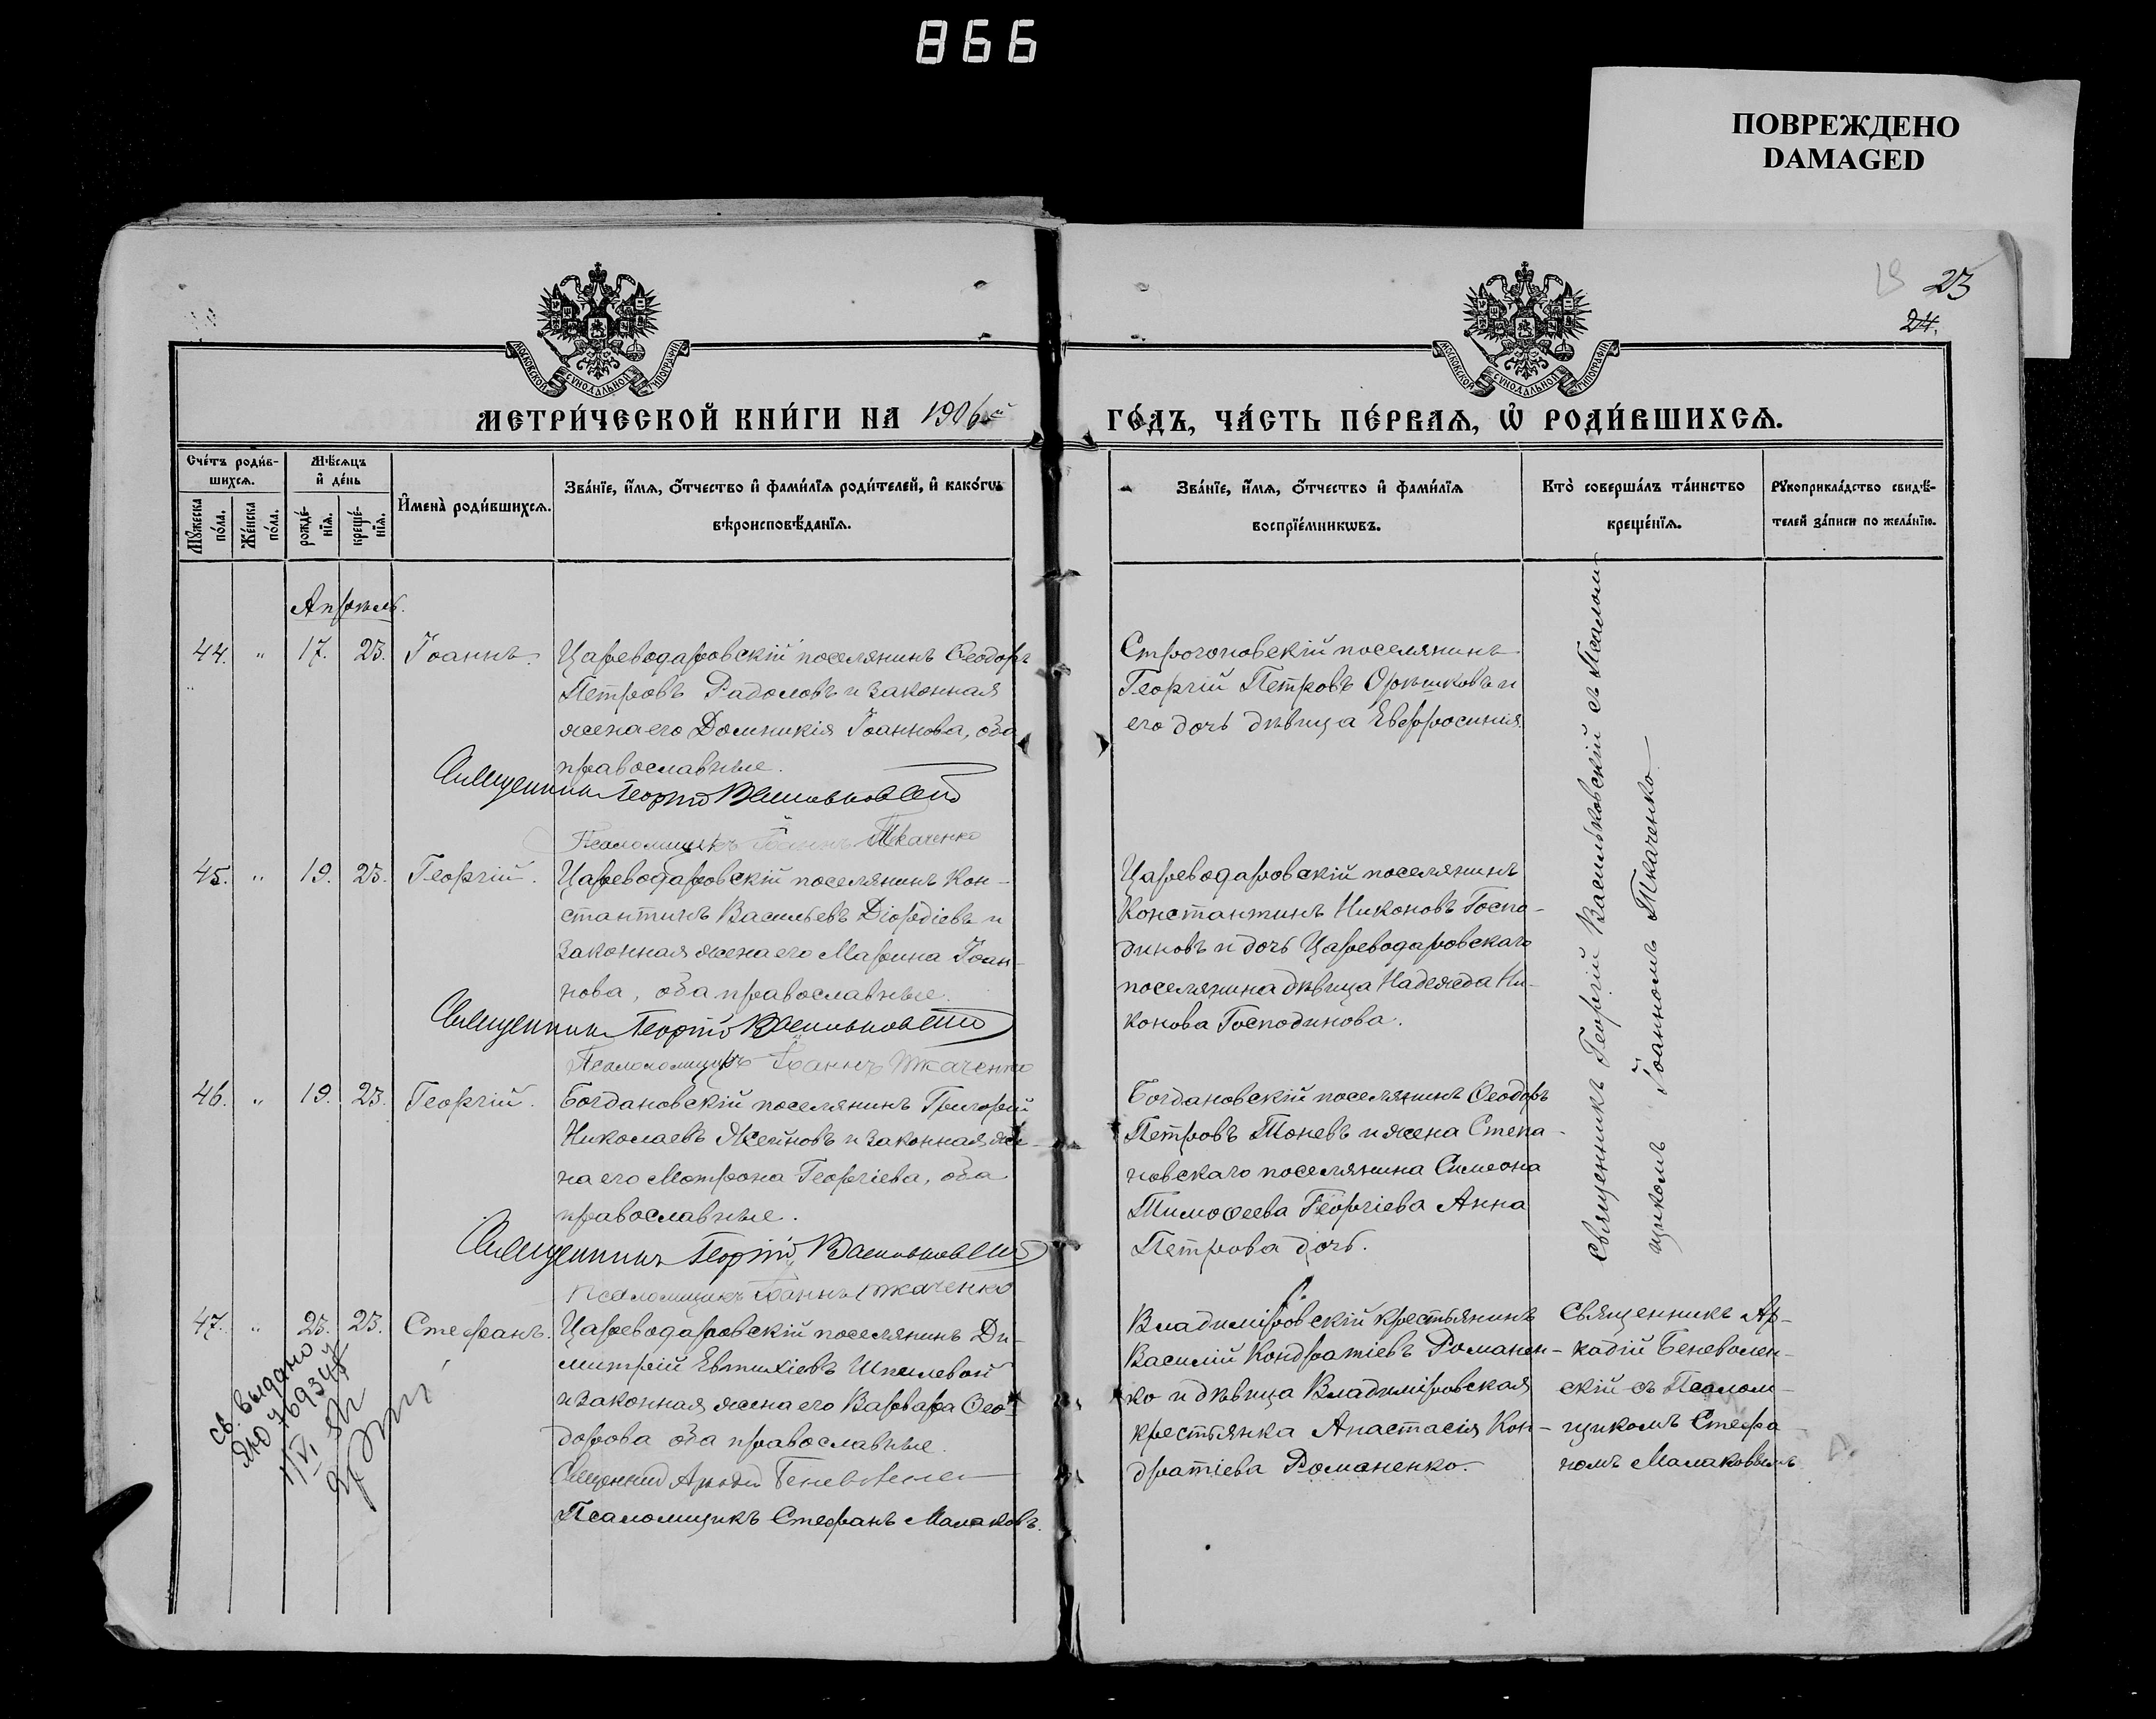 866
ПОВРЕЖДЕНО
DAMAGED
23
24.
МОСКОВСКОЙ СУНОДАЛЬНОЙ ТИПОГРАФІИ
МОСКОВСКОЙ СУНОДАЛЬНОЙ ТИПОГРАФІИ
МЕТРИ́ЧЕСКОЙ КНИ́ГИ НА 1906й
ГО́ДЪ, ЧА́СТЬ ПЕ́РВАѦ, Ѡ҆ РОДИ́ВШИХСѦ.
Сче́тъ роди́в-
шихсѧ.
Мꙋ́жеска
по́ла.
Же́нска
по́ла.
Мѣ́сѧцъ
и҆ де́нь
рожде́-
нїѧ.
креще́-
нїѧ.
И҆мена̀ роди́вшихсѧ.
Зва́нїе, и҆́мѧ, ѻ҆́тчество и҆ фами́лїѧ роди́телей, и҆ како́гѡ
вѣроисповѣ́данїѧ.
Зва́нїе, и҆́мѧ, ѻ҆́тчество и҆ фами́лїѧ
воспрїе́мникѡвъ.
Кто̀ соверша́лъ та́инство
креще́нїѧ.
Рꙋкоприкла́дство свидѣ́-
телей за́писи по жела́нїю.
Апрѣль.
44. " 17. 23. Іоаннъ. Цареводаровскій поселянинъ Ѳеодоръ
Петровъ Радоловъ и законная
жена его Домникія Іоаннова, оба
православные.
Священникъ Георгій Васильковскій
Псаломщикъ Іоаннъ Ткаченко
Строгоновскій поселянинъ
Георгій Петровъ Орѣшковъ и
его дочь дѣвица Евфросинія
Священникъ Георгій Васильковскій съ Псалом-
щикомъ Іоанномъ Ткаченко
45. " 19. 23. Георгій. Цареводаровскій поселянинъ Кон-
стантинъ Васильевъ Діордіевъ и
законная жена его Марина Іоан-
нова, оба православные.
Священникъ Георгій Васильковскій
Псаломщикъ Іоаннъ Ткаченко
Цареводаровскій поселянинъ
Константинъ Никоновъ Госпо-
диновъ и дочь Цареводаровскаго
поселянина дѣвица Надежда Ни-
конова Господинова.
46. " 19. 23. Георгій. Богдановскій поселянинъ Григорій
Николаевъ Жейновъ и законная же-
на его Матрона Георгіева, оба
православные.
Священникъ Георгій Васильковскій
Псаломщикъ Іоаннъ Ткаченко
Богдановскій поселянинъ Ѳеодоръ
Петровъ Тоневъ и жена Степа-
новскаго поселянина Симеона
Тимоѳеева Георгіева Анна
Петрова дочь.
47. " 23. 23. Стефанъ. Цареводаровскій поселянинъ Ди-
митрій Евтихіевъ Шпилевой
и законная жена его Варвара Ѳео-
дорова оба православные.
Священникъ Аркадій Беневоленскій
Псаломщикъ Стефанъ Малаковъ.
св. выдано
Владимировскій крестьянинъ
Василій Кондратіевъ Романен-
ко и дѣвица Владимировская
крестьянка Анастасія Кон-
дратіева Романенко.
Священникъ Ар-
кадій Беневолен-
скій съ Псалом-
щикомъ Стефа
номъ Малаковымъ